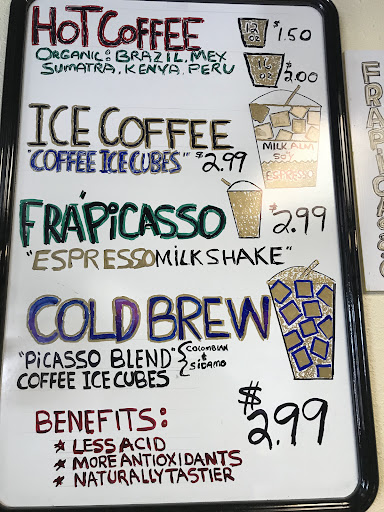 HOT COFFEE
12 oz $1.50
ORGANIC: BRAZIL, MEX
SUMATRA, KENYA, PERU
16 oz $2.00
ICE COFFEE
"COFFEE ICE CUBES" $2.99
MILK ALM
SOY
ESPRESSO
FRAPICASSO
$2.99
"ESPRESSO MILKSHAKE"
COLD BREW
"PiCASSO BLEND" { COLOMBIAN
&
SIDAMO
COFFEE ICE CUBES
$2.99
BENEFITS:
* LESS ACID
* MORE ANTIOXIDANTS
* NATURALLY TASTIER